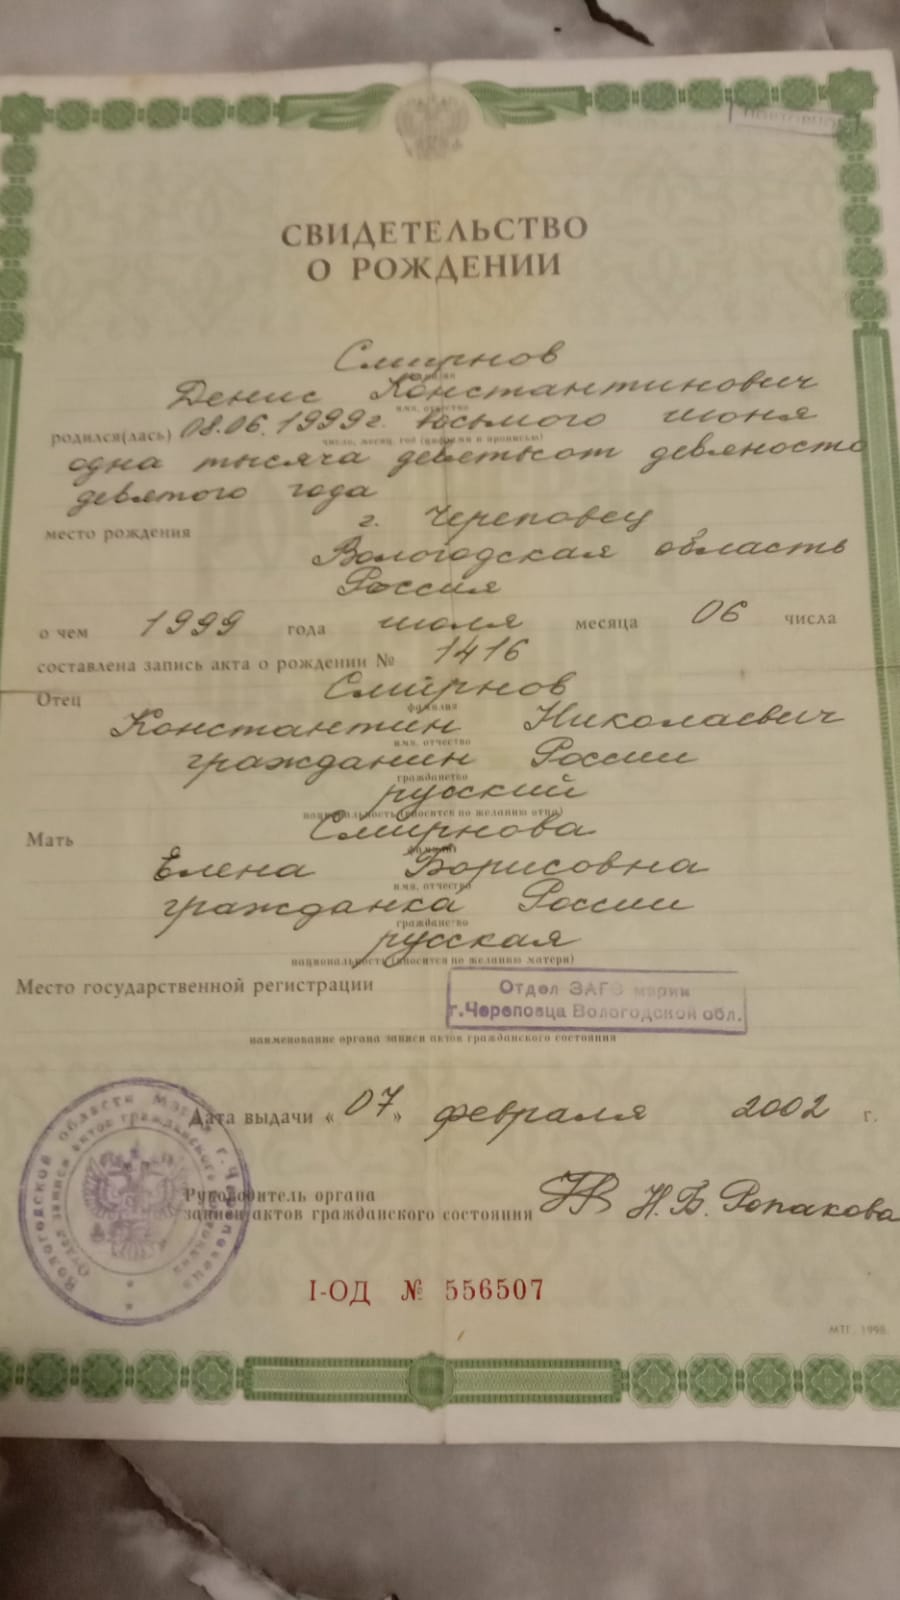 СВИДЕТЕЛЬСТВО
О РОЖДЕНИИ
Смирнов
фамилия
Денис Константинович
имя, отчество
родился(лась) 08.06.1999г. восьмого июня
число, месяц, год (цифрами и прописью)
одна тысяча девятьсот девяносто
девятого года
место рождения г. Череповец
Вологодская область
Россия
о чем 1999 года июля месяца 06 числа
составлена запись акта о рождении № 1416
Отец Смирнов
фамилия
Константин Николаевич
имя, отчество
гражданин России
гражданство
русский
национальность (вносится по желанию отца)
Мать Смирнова
фамилия
Елена Борисовна
имя, отчество
гражданка России
гражданство
русская
национальность (вносится по желанию матери)
Место государственной регистрации Отдел ЗАГС мэрии
г.Череповца Вологодской обл.
наименование органа записи актов гражданского состояния
Дата выдачи «07» февраля 2002 г.
Руководитель органа
записи актов гражданского состояния Н.Б. Ропакова
I-ОД № 556507
МТГ. 1998.